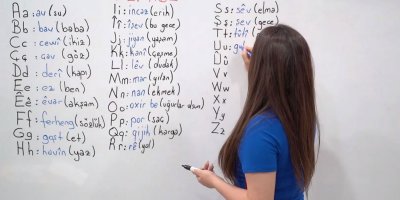 Aa: av (su)
Bb: bav (baba)
Cc: cewî (ikiz)
Çç: çav (göz)
Dd: derî (kapı)
Ee: ez (ben)
Êê: êvar (akşam)
Ff: ferheng (sözlük)
Gg: goşt (et)
Hh: havîn (yaz)
Ii: incaz (erik)
Îî: îşev (bu gece)
Jj: jiyan (yaşam)
Kk: kanî (çeşme)
Ll: lêv (dudak)
Mm: mar (yılan)
Nn: nan (ekmek)
Oo: oxir be (uğurlar olsun)
Pp: por (saç)
Qq: qijik (karga)
Rr: rê (yol)
Ss: sêv (elma)
Şş: şev (gece)
Tt: tilî
Uu:
Ûû
Vv
Ww
Xx
Yy
Zz